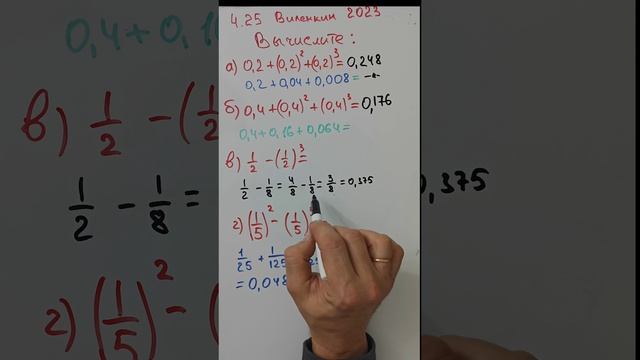 4.25 Виленкин 2023
Вычислите:
а) 0,2 + (0,2)² + (0,2)³ = 0,248
0,2 + 0,04 + 0,008 =
б) 0,4 + (0,4)² + (0,4)³ = 0,176
0,4 + 0,16 + 0,064 =
в) 1/2 − (1/2)³ =
1/2 − 1/8 = 4/8 − 1/8 = 3/8 = 0,375
г) (1/5)² − (1/5)
1/25 + 1/125
= 0,048